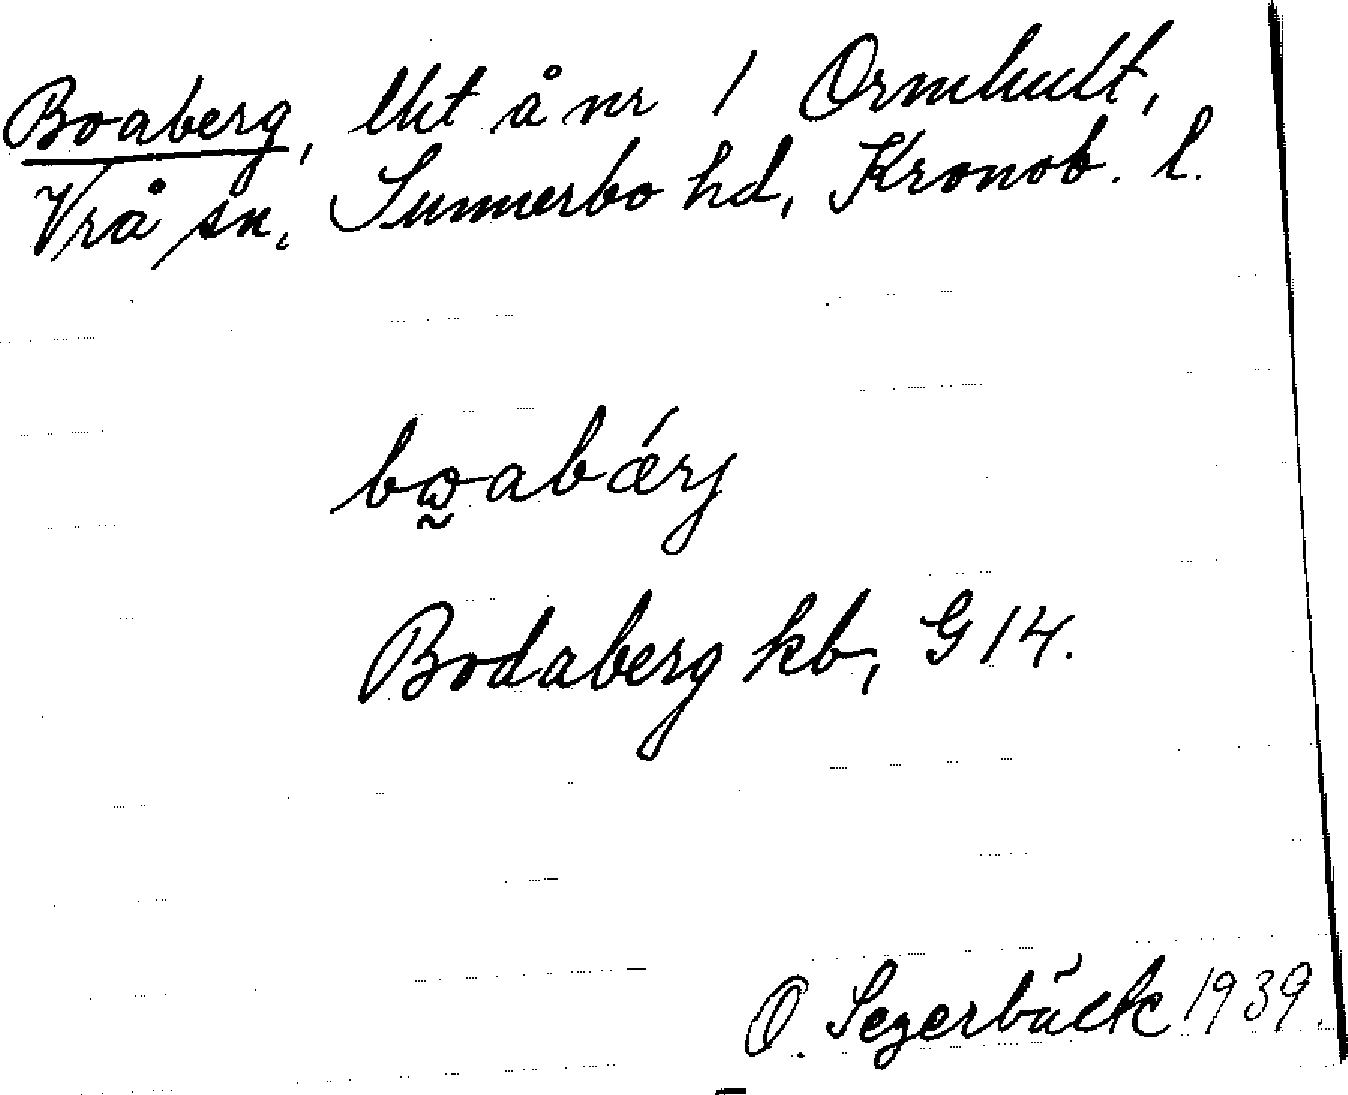 Boaberg, lht å nr 1 Ormhult,
Vrå sn, Sunnerbo hd, Kronob. l.
Bodaberg kb, G 14.
O. Segerbäck 1939.